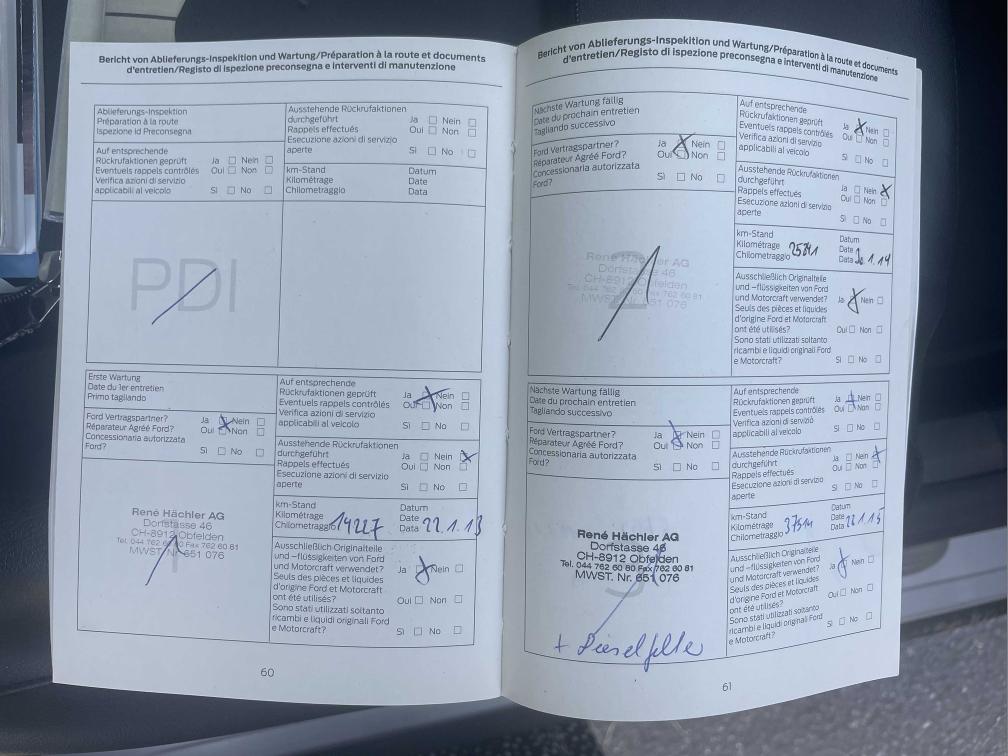 Bericht von Ablieferungs-Inspektion und Wartung/Préparation à la route et documents
d'entretien/Registo di ispezione preconsegna e interventi di manutenzione
Ablieferungs-Inspektion
Préparation à la route
Ispezione id Preconsegna
Auf entsprechende
Rückrufaktionen geprüft Ja Nein
Eventuels rappels contrôlés Oui Non
Verifica azioni di servizio
applicabili al veicolo Sì No
Ausstehende Rückrufaktionen
durchgeführt Ja Nein
Rappels effectués Oui Non
Esecuzione azioni di servizio
aperte Sì No
km-Stand Datum
Kilométrage Date
Chilometraggio Data
PDI
Erste Wartung
Date du 1er entretien
Primo tagliando
Ford Vertragspartner? Ja Nein
Réparateur Agréé Ford? Oui Non
Concessionaria autorizzata
Ford? Sì No
Auf entsprechende
Rückrufaktionen geprüft Ja Nein
Eventuels rappels contrôlés Oui Non
Verifica azioni di servizio
applicabili al veicolo Sì No
Ausstehende Rückrufaktionen
durchgeführt Ja Nein
Rappels effectués Oui Non
Esecuzione azioni di servizio
aperte Sì No
km-Stand Datum
Kilométrage Date
Chilometraggio 14227 Data 22.1.13
René Hächler AG
Dorfstasse 46
CH-8912 Obfelden
Tel. 044 762 60 80 Fax 762 60 81
MWST. Nr. 651 076
1
Ausschließlich Originalteile
und -flüssigkeiten von Ford
und Motorcraft verwendet? Ja Nein
Seuls des pièces et liquides
d'origine Ford et Motorcraft
ont été utilisés? Oui Non
Sono stati utilizzati soltanto
ricambi e liquidi originali Ford
e Motorcraft? Sì No
60
Bericht von Ablieferungs-Inspektion und Wartung/Préparation à la route et documents
d'entretien/Registo di ispezione preconsegna e interventi di manutenzione
Nächste Wartung fällig
Date du prochain entretien
Tagliando successivo
Ford Vertragspartner? Ja Nein
Réparateur Agréé Ford? Oui Non
Concessionaria autorizzata
Ford? Sì No
Auf entsprechende
Rückrufaktionen geprüft Ja Nein
Eventuels rappels contrôlés Oui Non
Verifica azioni di servizio
applicabili al veicolo Sì No
Ausstehende Rückrufaktionen
durchgeführt Ja Nein
Rappels effectués Oui Non
Esecuzione azioni di servizio
aperte Sì No
km-Stand Datum
Kilométrage Date
Chilometraggio 25841 Data 1.14
René Hächler AG
Dorfstasse 46
CH-8912 Obfelden
Tel. 044 762 60 80 Fax 762 60 81
MWST. Nr. 651 076
2
Ausschließlich Originalteile
und -flüssigkeiten von Ford
und Motorcraft verwendet? Ja Nein
Seuls des pièces et liquides
d'origine Ford et Motorcraft
ont été utilisés? Oui Non
Sono stati utilizzati soltanto
ricambi e liquidi originali Ford
e Motorcraft? Sì No
Nächste Wartung fällig
Date du prochain entretien
Tagliando successivo
Ford Vertragspartner? Ja Nein
Réparateur Agréé Ford? Oui Non
Concessionaria autorizzata
Ford? Sì No
Auf entsprechende
Rückrufaktionen geprüft Ja Nein
Eventuels rappels contrôlés Oui Non
Verifica azioni di servizio
applicabili al veicolo Sì No
Ausstehende Rückrufaktionen
durchgeführt Ja Nein
Rappels effectués Oui Non
Esecuzione azioni di servizio
aperte Sì No
km-Stand Datum
Kilométrage Date
Chilometraggio 37514 Data 22.1.15
René Hächler AG
Dorfstasse 46
CH-8912 Obfelden
Tel. 044 762 60 80 Fax 762 60 81
MWST. Nr. 651 076
3
+ Dieselfilter
Ausschließlich Originalteile
und -flüssigkeiten von Ford
und Motorcraft verwendet? Ja Nein
Seuls des pièces et liquides
d'origine Ford et Motorcraft
ont été utilisés? Oui Non
Sono stati utilizzati soltanto
ricambi e liquidi originali Ford
e Motorcraft? Sì No
61